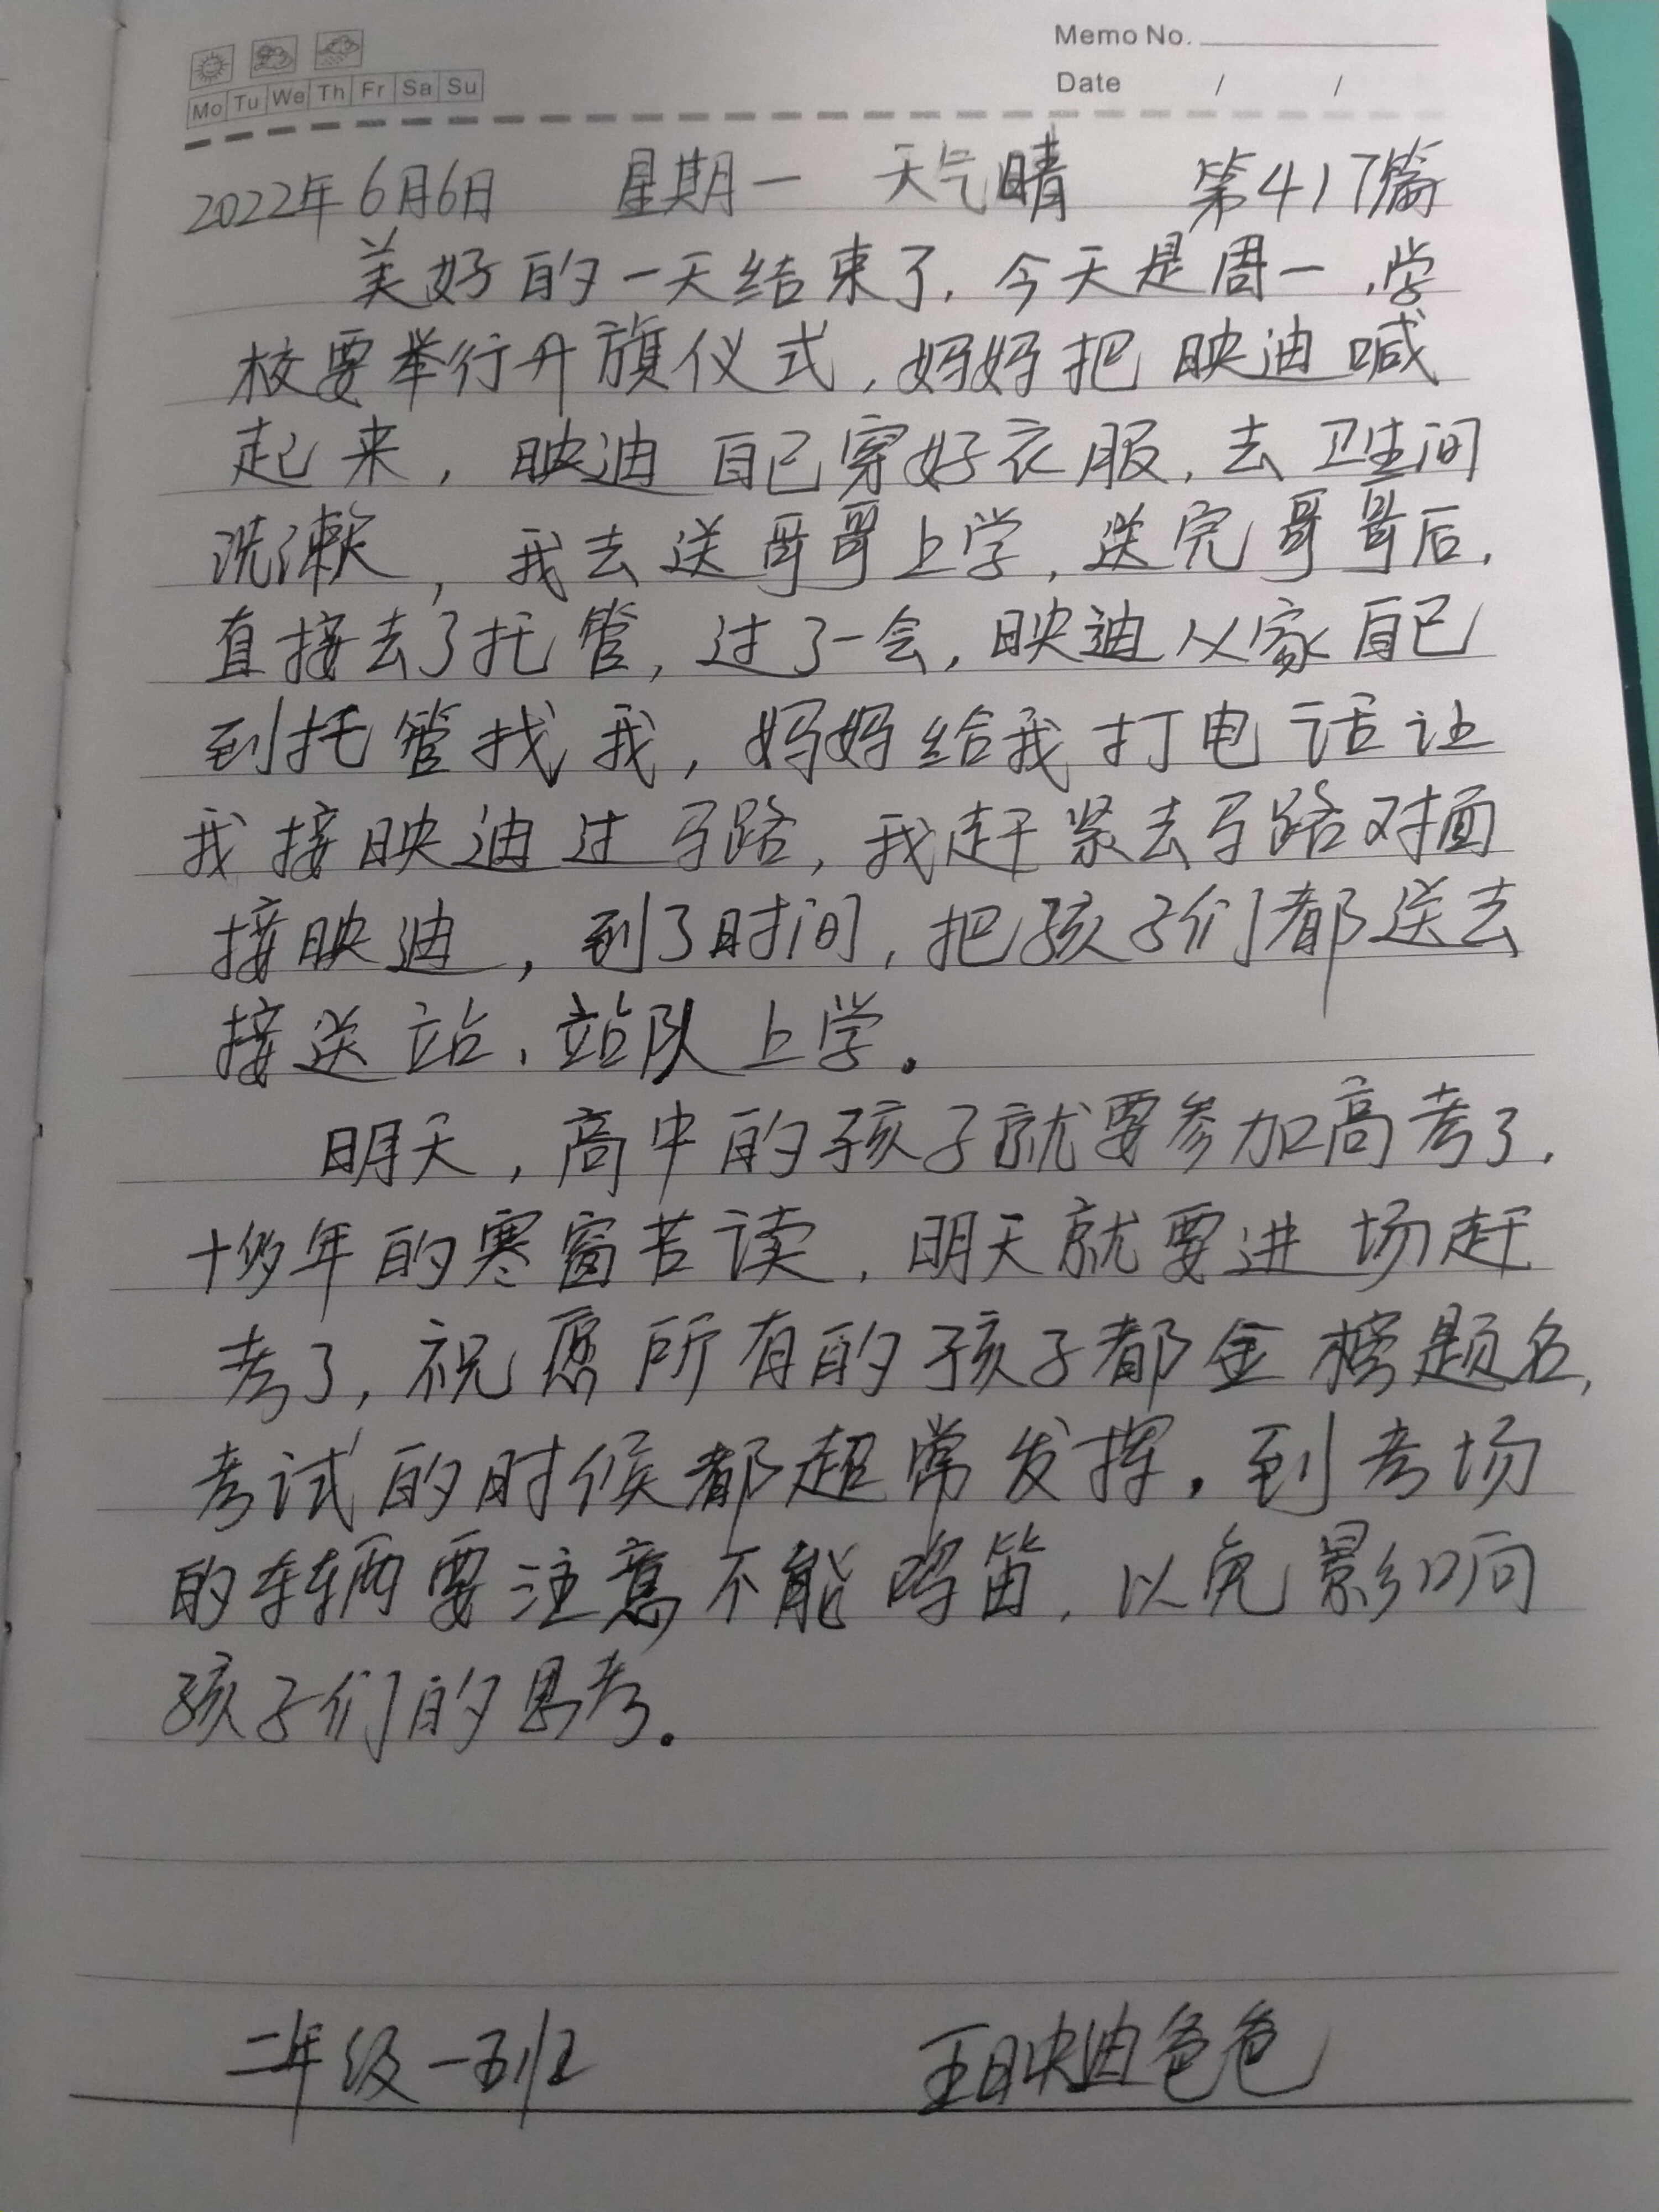 Memo No.
Mo Tu We Th Fr Sa Su
Date / /
2022年6月6日 星期一 天气晴 第417篇
美好的一天结束了,今天是周一,学
校要举行升旗仪式,妈妈把映迪喊
起来,映迪自己穿好衣服,去卫生间
洗漱,我去送哥哥上学,送完哥哥后,
直接去了托管,过了一会,映迪从家自己
到托管找我,妈妈给我打电话让
我接映迪过马路,我赶紧去马路对面
接映迪,到了时间,把孩子们都送去
接送站,站队上学。
明天,高中的孩子就要参加高考了,
十多年的寒窗苦读,明天就要进场赶
考了,祝愿所有的孩子都金榜题名,
考试的时候都超常发挥。到考场
的车辆要注意不能鸣笛,以免影响
孩子们的思考。
二年级一班 王映迪爸爸